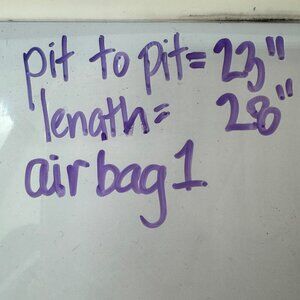 pit to pit= 23"
length= 28"
airbag1